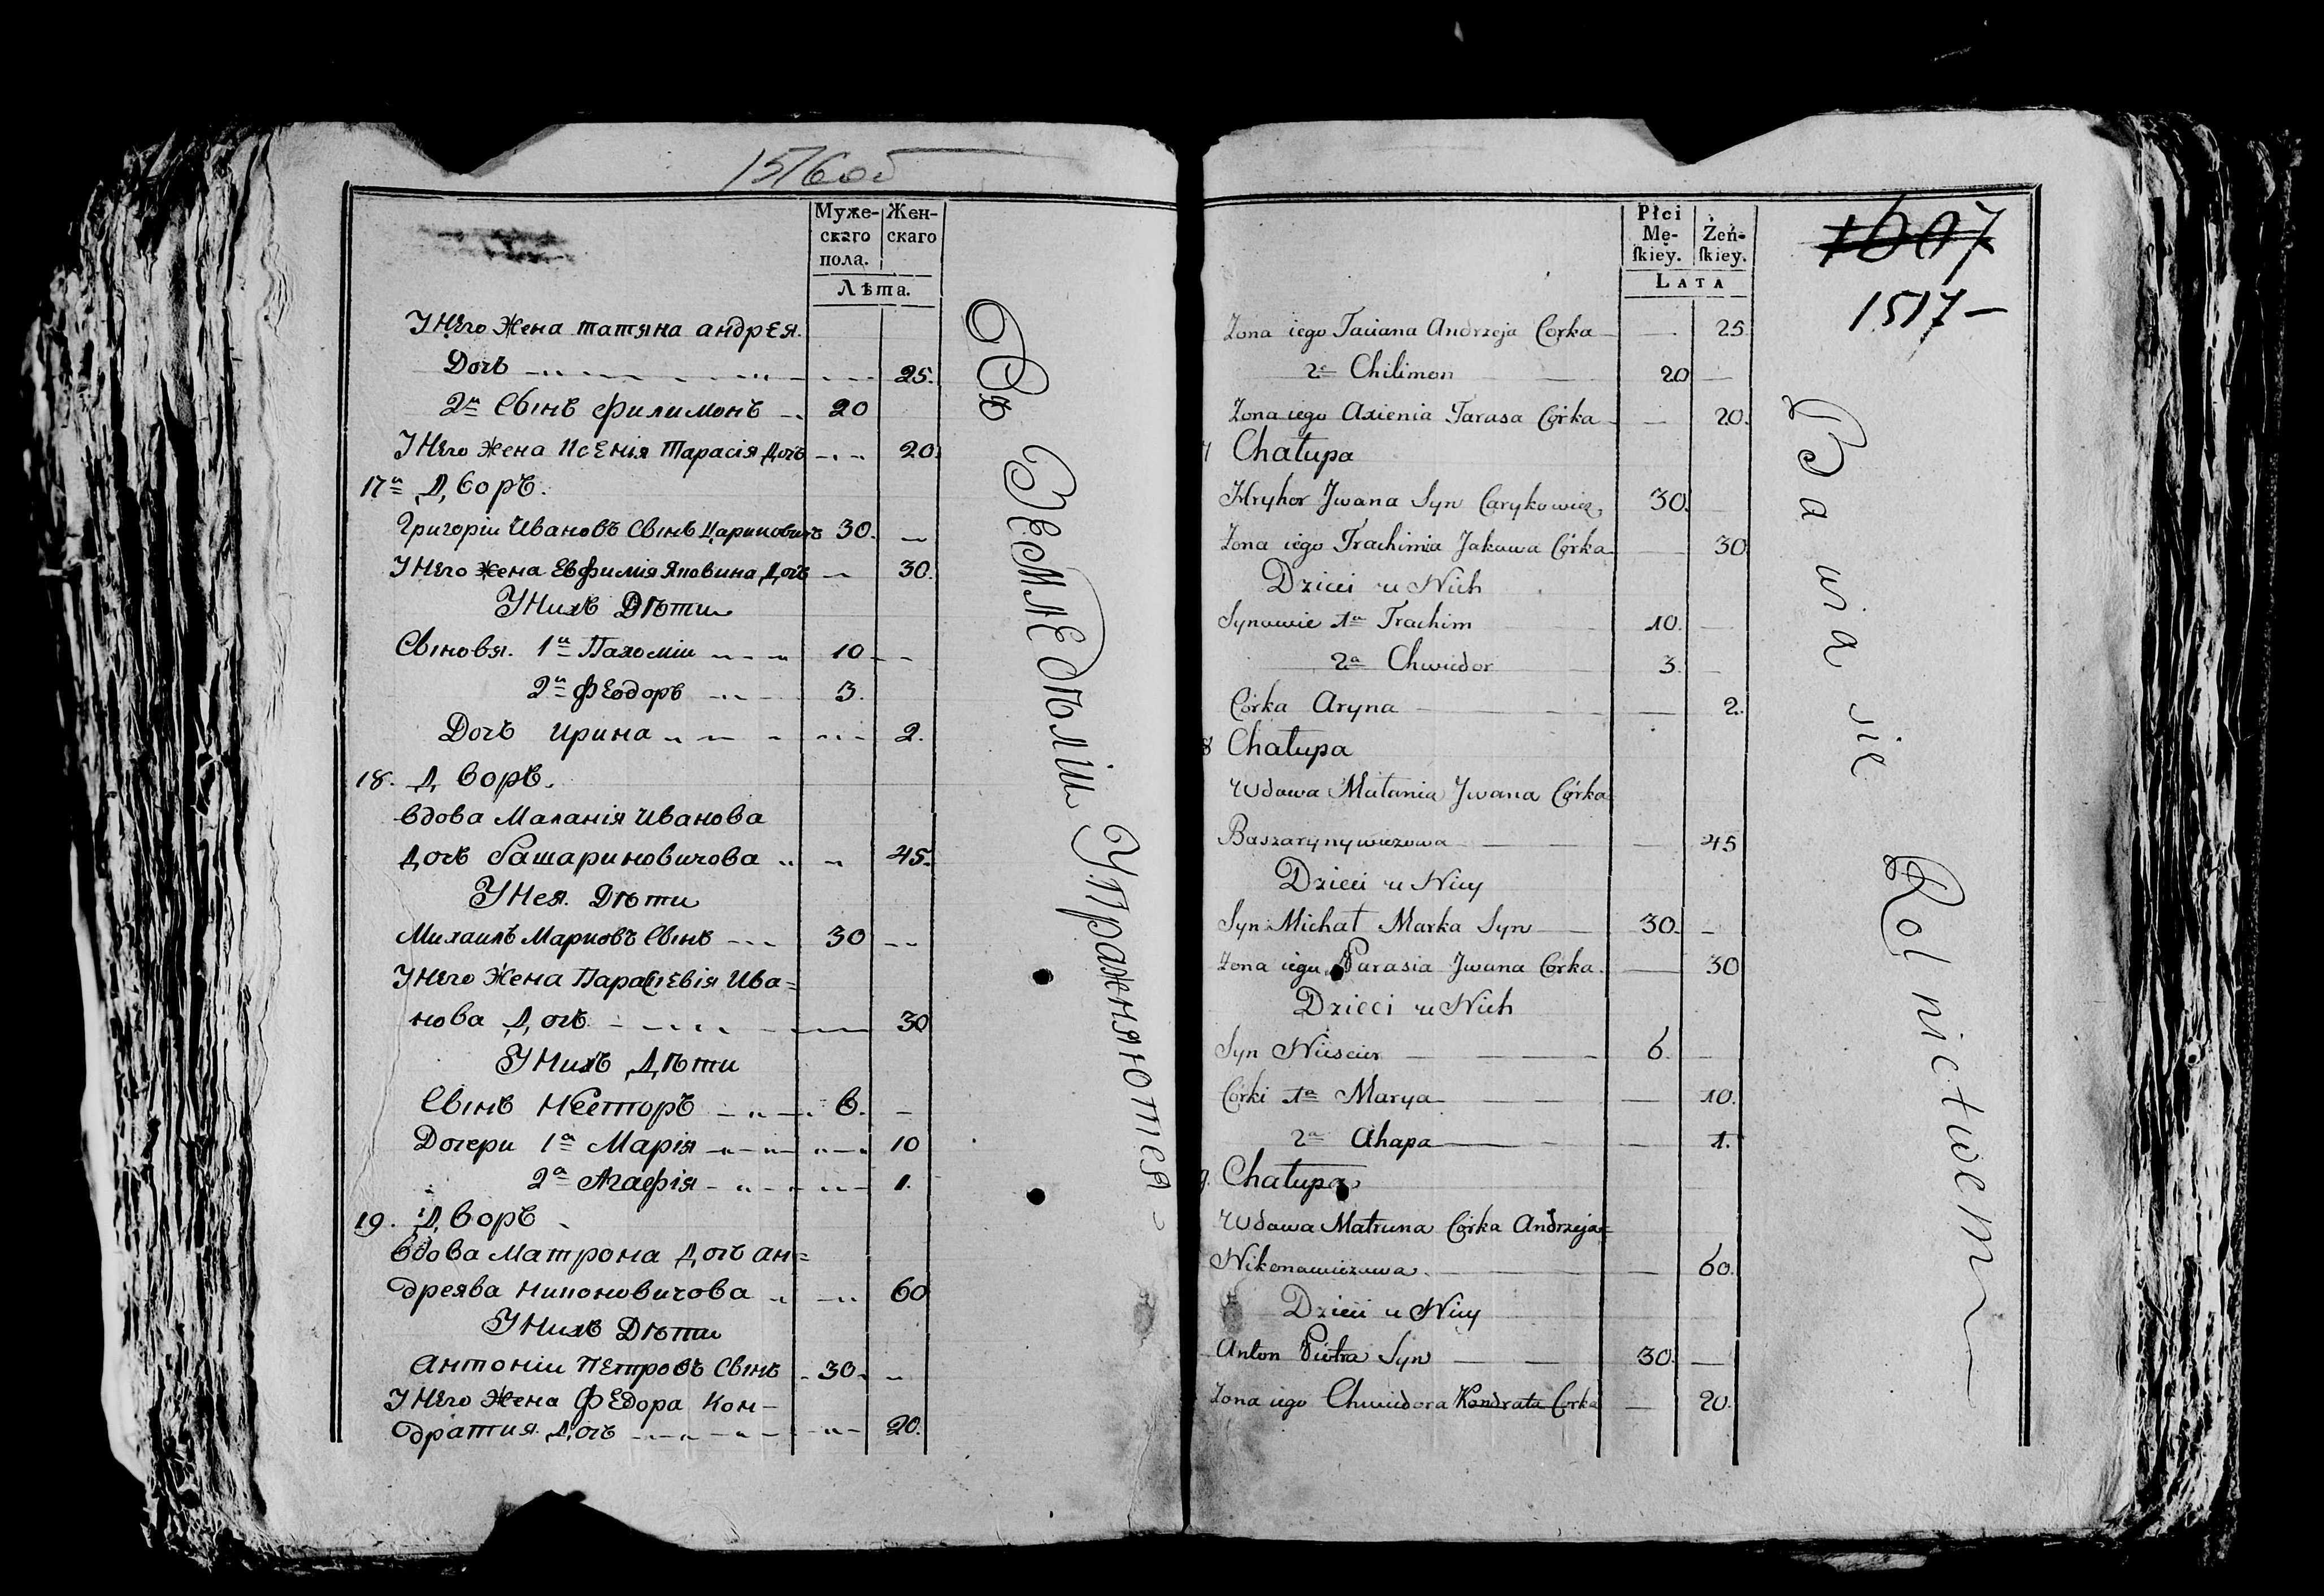 1516об
Муже-
скаго
пола.
Жен-
скаго
Лѣта.
У Него Жена татяна андрея.
Дочь 25.
2й Сынъ филимонъ 20
У Него жена Ксенія Тарасія дочь 20.
17й Дворъ.
Григоріи Ивановъ Сынъ Цариковичъ 30.
У Него жена Евфимія Яковина дочь 30.
У Нихъ Дѣти
Сыновя. 1й Пахоміи 10
2й феодоръ 3.
Дочь Ирина 2.
18. Дворъ.
вдова Маланія Иванова
дочь башариновичова 45.
У Нея. Дѣти
Михаилъ Марковъ Сынъ 30
У Него Жена Параскевія Ива=
нова Дочь 30
У Нихъ Дѣти
Сынъ Несторъ 6.
Дочери 1я Марія 10
2я Агафія 1.
19. Дворъ
вдова Матрона дочь ан=
дреява Никоновичова 60
У Нихъ Дѣти
Антоніи Петровъ Сынъ 30.
У Него Жена Федора Кон-
дратия Дочь 20.
Въ Земледѣліи Упражняются
Płci
Mę-
ſkiey.
Żeń-
ſkiey.
LATA
1517-
Zona iego Taciana Andrzeja Corka 25.
2i Chilimon 20
Zona iego Axienia Tarasa Córka 20.
7 Chałupa
Hryhor Jwana Syn Carykowicz 30.
Zona iego Trachimia Jakawa Córka 30
Dzieci u Nich
Synowie 1n Trachim 10.
2a Chwiedor 3.
Córka Aryna 2.
8 Chałupa
Wdowa Małania Jwana Córka
Baszarynywiczowa 45
Dzieci u Niey
Syn Michał Marka Syn 30.
Zona iego Parasia Jwana Corka 30
Dzieci u Nich
Syn Niescier 6.
Córki 1a Marya 10.
2a Ahapa 1.
9. Chałupa
Wdowa Matruna Córka Andrzeja=
Nikonawiczowa 60.
Dzieci u Niey
Anton Piotra Syn 30.
Zona iego Chwiedora Kondrata Corka 20.
Bawia sie Rolnictwem